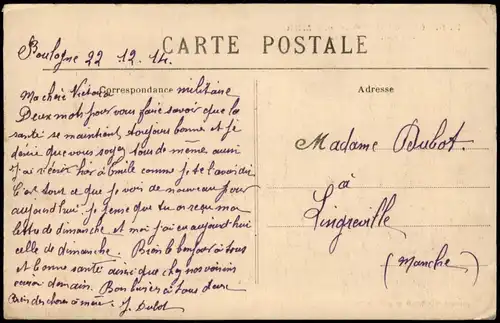 Boulogne 22 . 12 . 14.
CARTE POSTALE
Correspondance militaire
Adresse
Ma chère Victoria
Deux mots pour vous faire savoir que la
santé se maintient toujours bonne et je
désire que vous soyez tous de même aussi
J'ai écrit hier à Emile comme je te l'avais dit
C'est tout ce que je vois de nouveau pour
aujourd'hui. Je pense que tu as reçu ma
lettre de dimanche et moi j'ai eu aujourd'hui
celle de dimanche. Bien le bonjour à tous
et bonne santé ainsi que chez nos voisins
demain. Bons baisers à tous deux
Bien des choses à J. Dubot
Madame Dubot.
à
Lingreville
(Manche)